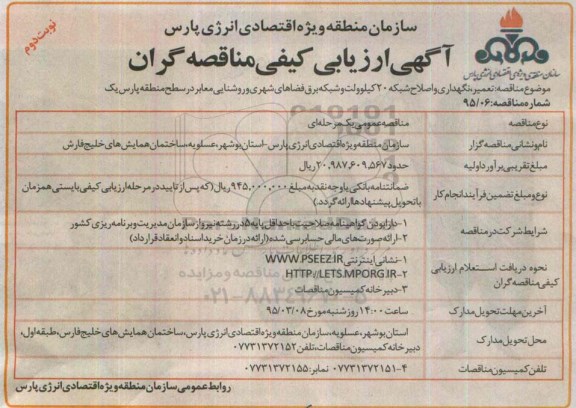 نوبت دوم
سازمان منطقه ویژه اقتصادی انرژی پارس
آگهی ارزیابی کیفی مناقصه گران
سازمان منطقه ویژه اقتصادی انرژی پارس
موضوع مناقصه: تعمیر، نگهداری و اصلاح شبکه ۲۰ کیلوولت و شبکه برق فضاهای شهری و روشنایی معابر در سطح منطقه پارس یک
شماره مناقصه: ۹۵/۰۶
نوع مناقصه
مناقصه عمومی یک مرحله ای
نام و نشانی مناقصه گزار
سازمان منطقه ویژه اقتصادی انرژی پارس - استان بوشهر، عسلویه، ساختمان همایش های خلیج فارس
مبلغ تقریبی برآورد اولیه
حدود ۲۰،۹۸۷،۶۰۹،۵۶۷ ریال
نوع و مبلغ تضمین فرآیند انجام کار
ضمانتنامه بانکی یا وجه نقد به مبلغ ۹۴۵،۰۰۰،۰۰۰ ریال (که پس از تایید در مرحله ارزیابی کیفی بایستی همزمان
با تحویل پیشنهادها ارائه گردد)
شرایط شرکت در مناقصه
۱- دارا بودن گواهینامه صلاحیت با حداقل پایه ۵ در رشته نیرو از سازمان مدیریت و برنامه ریزی کشور
۲- ارائه صورت های مالی حسابرسی شده (ارائه در زمان خرید اسناد و انعقاد قرارداد)
نحوه دریافت استعلام ارزیابی
کیفی مناقصه گران
۱- نشانی اینترنتی WWW.PSEEZ.IR
۲- HTTP//:ETS.MPORG.IR
۳- دبیرخانه کمیسیون مناقصات
آخرین مهلت تحویل مدارک
ساعت ۱۴:۰۰ روز شنبه مورخ ۹۵/۰۳/۰۸
محل تحویل مدارک
استان بوشهر، عسلویه، سازمان منطقه ویژه اقتصادی انرژی پارس، ساختمان همایش های خلیج فارس، طبقه اول،
دبیرخانه کمیسیون مناقصات، تلفن ۰۷۷۳۱۳۷۲۱۵۲
تلفن کمیسیون مناقصات
۰۷۷۳۱۳۷۲۱۵۱-۴ نمابر: ۰۷۷۳۱۳۷۲۱۵۵
روابط عمومی سازمان منطقه ویژه اقتصادی انرژی پارس